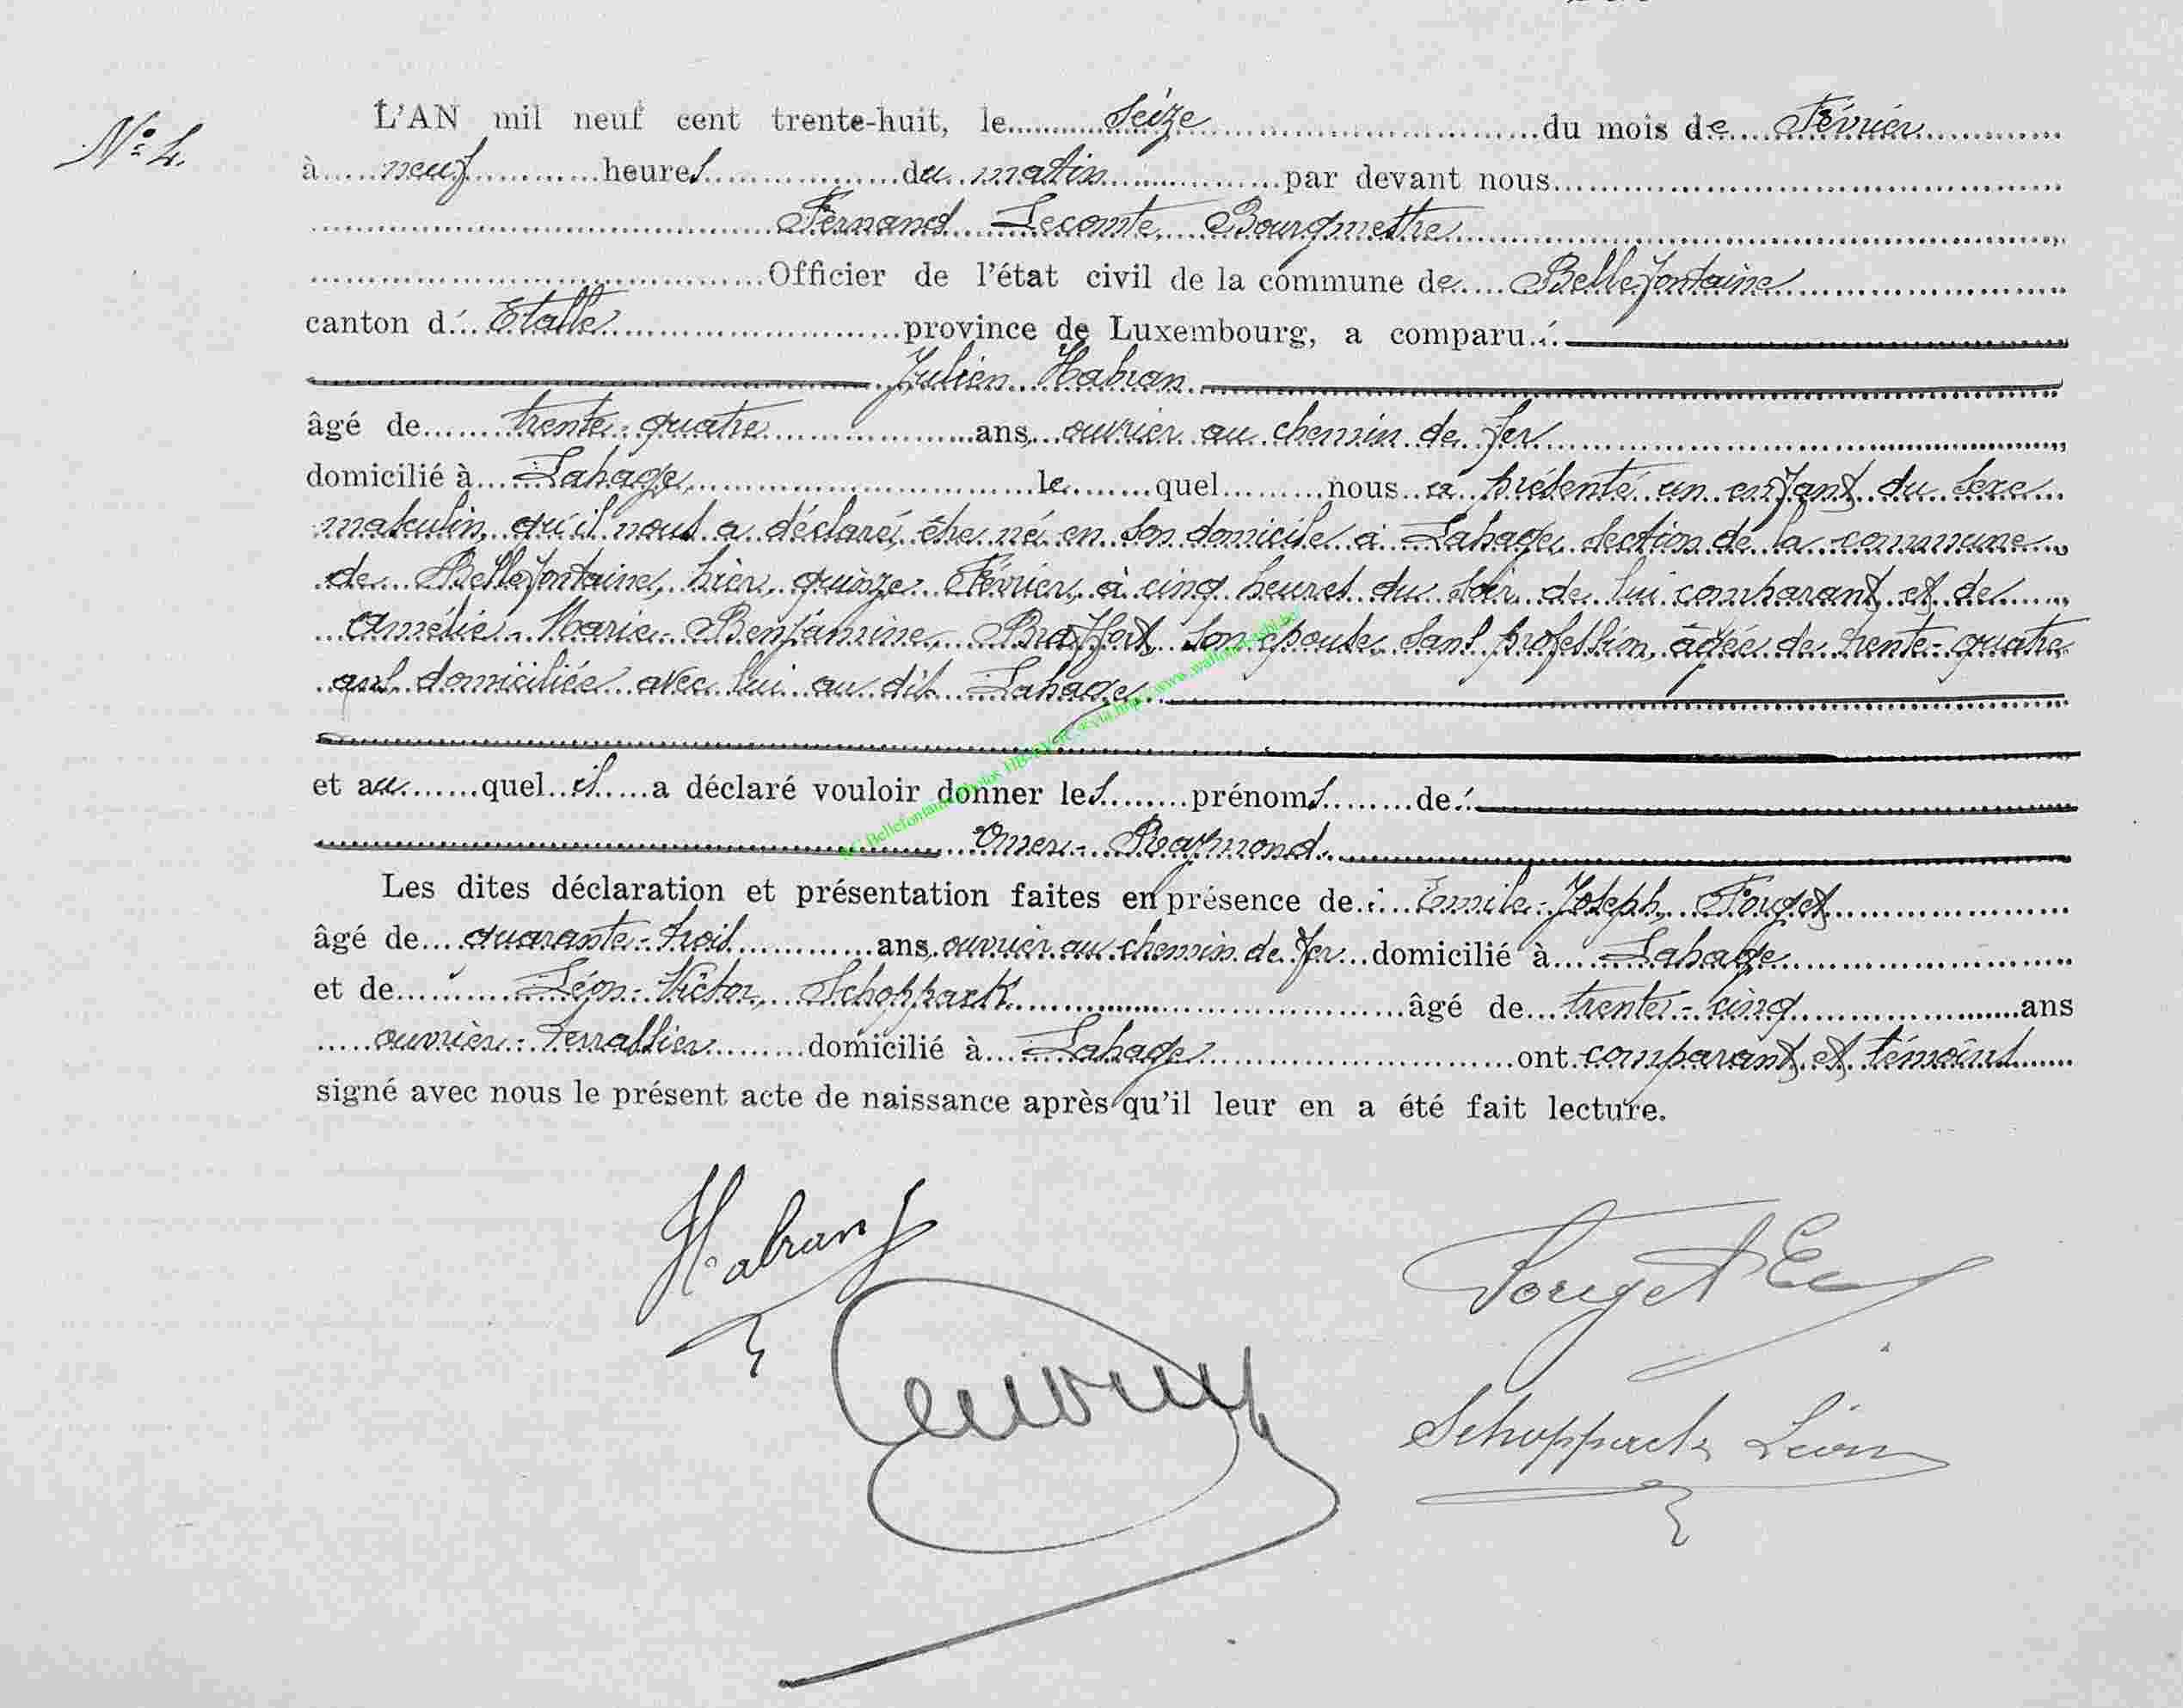 N° 4.
L'AN mil neuf cent trente-huit, le seize du mois de Février
à neuf heures du matin par devant nous
Fernand Lecomte, Bourgmestre
Officier de l'état civil de la commune de Bellefontaine
canton d' Etalle province de Luxembourg, a comparu :
Julien Habran
âgé de trente-quatre ans, ouvrier au chemin de fer
domicilié à Lahage, le quel nous a présenté un enfant du sexe
masculin, qu'il nous a déclaré, être né en son domicile à Lahage, section de la commune
de Bellefontaine, hier, quinze Février, à cinq heures du soir de lui comparant et de
Amélie-Marie-Benjamine, Braffort, son épouse, sans profession, âgée de trente-quatre
ans domiciliée avec lui au dit Lahage
et au quel il a déclaré vouloir donner les prénoms de :
Omer-Raymond.
Les dites déclaration et présentation faites en présence de : Emile-Joseph, Forget
âgé de quarante-trois ans, ouvrier au chemin de fer domicilié à Lahage
et de Léon-Victor, Schoppach âgé de trente-cinq ans
ouvrier-terrassier domicilié à Lahage ont comparant et témoins
signé avec nous le présent acte de naissance après qu'il leur en a été fait lecture.
Habran J
Forget Em
Schoppach Léon